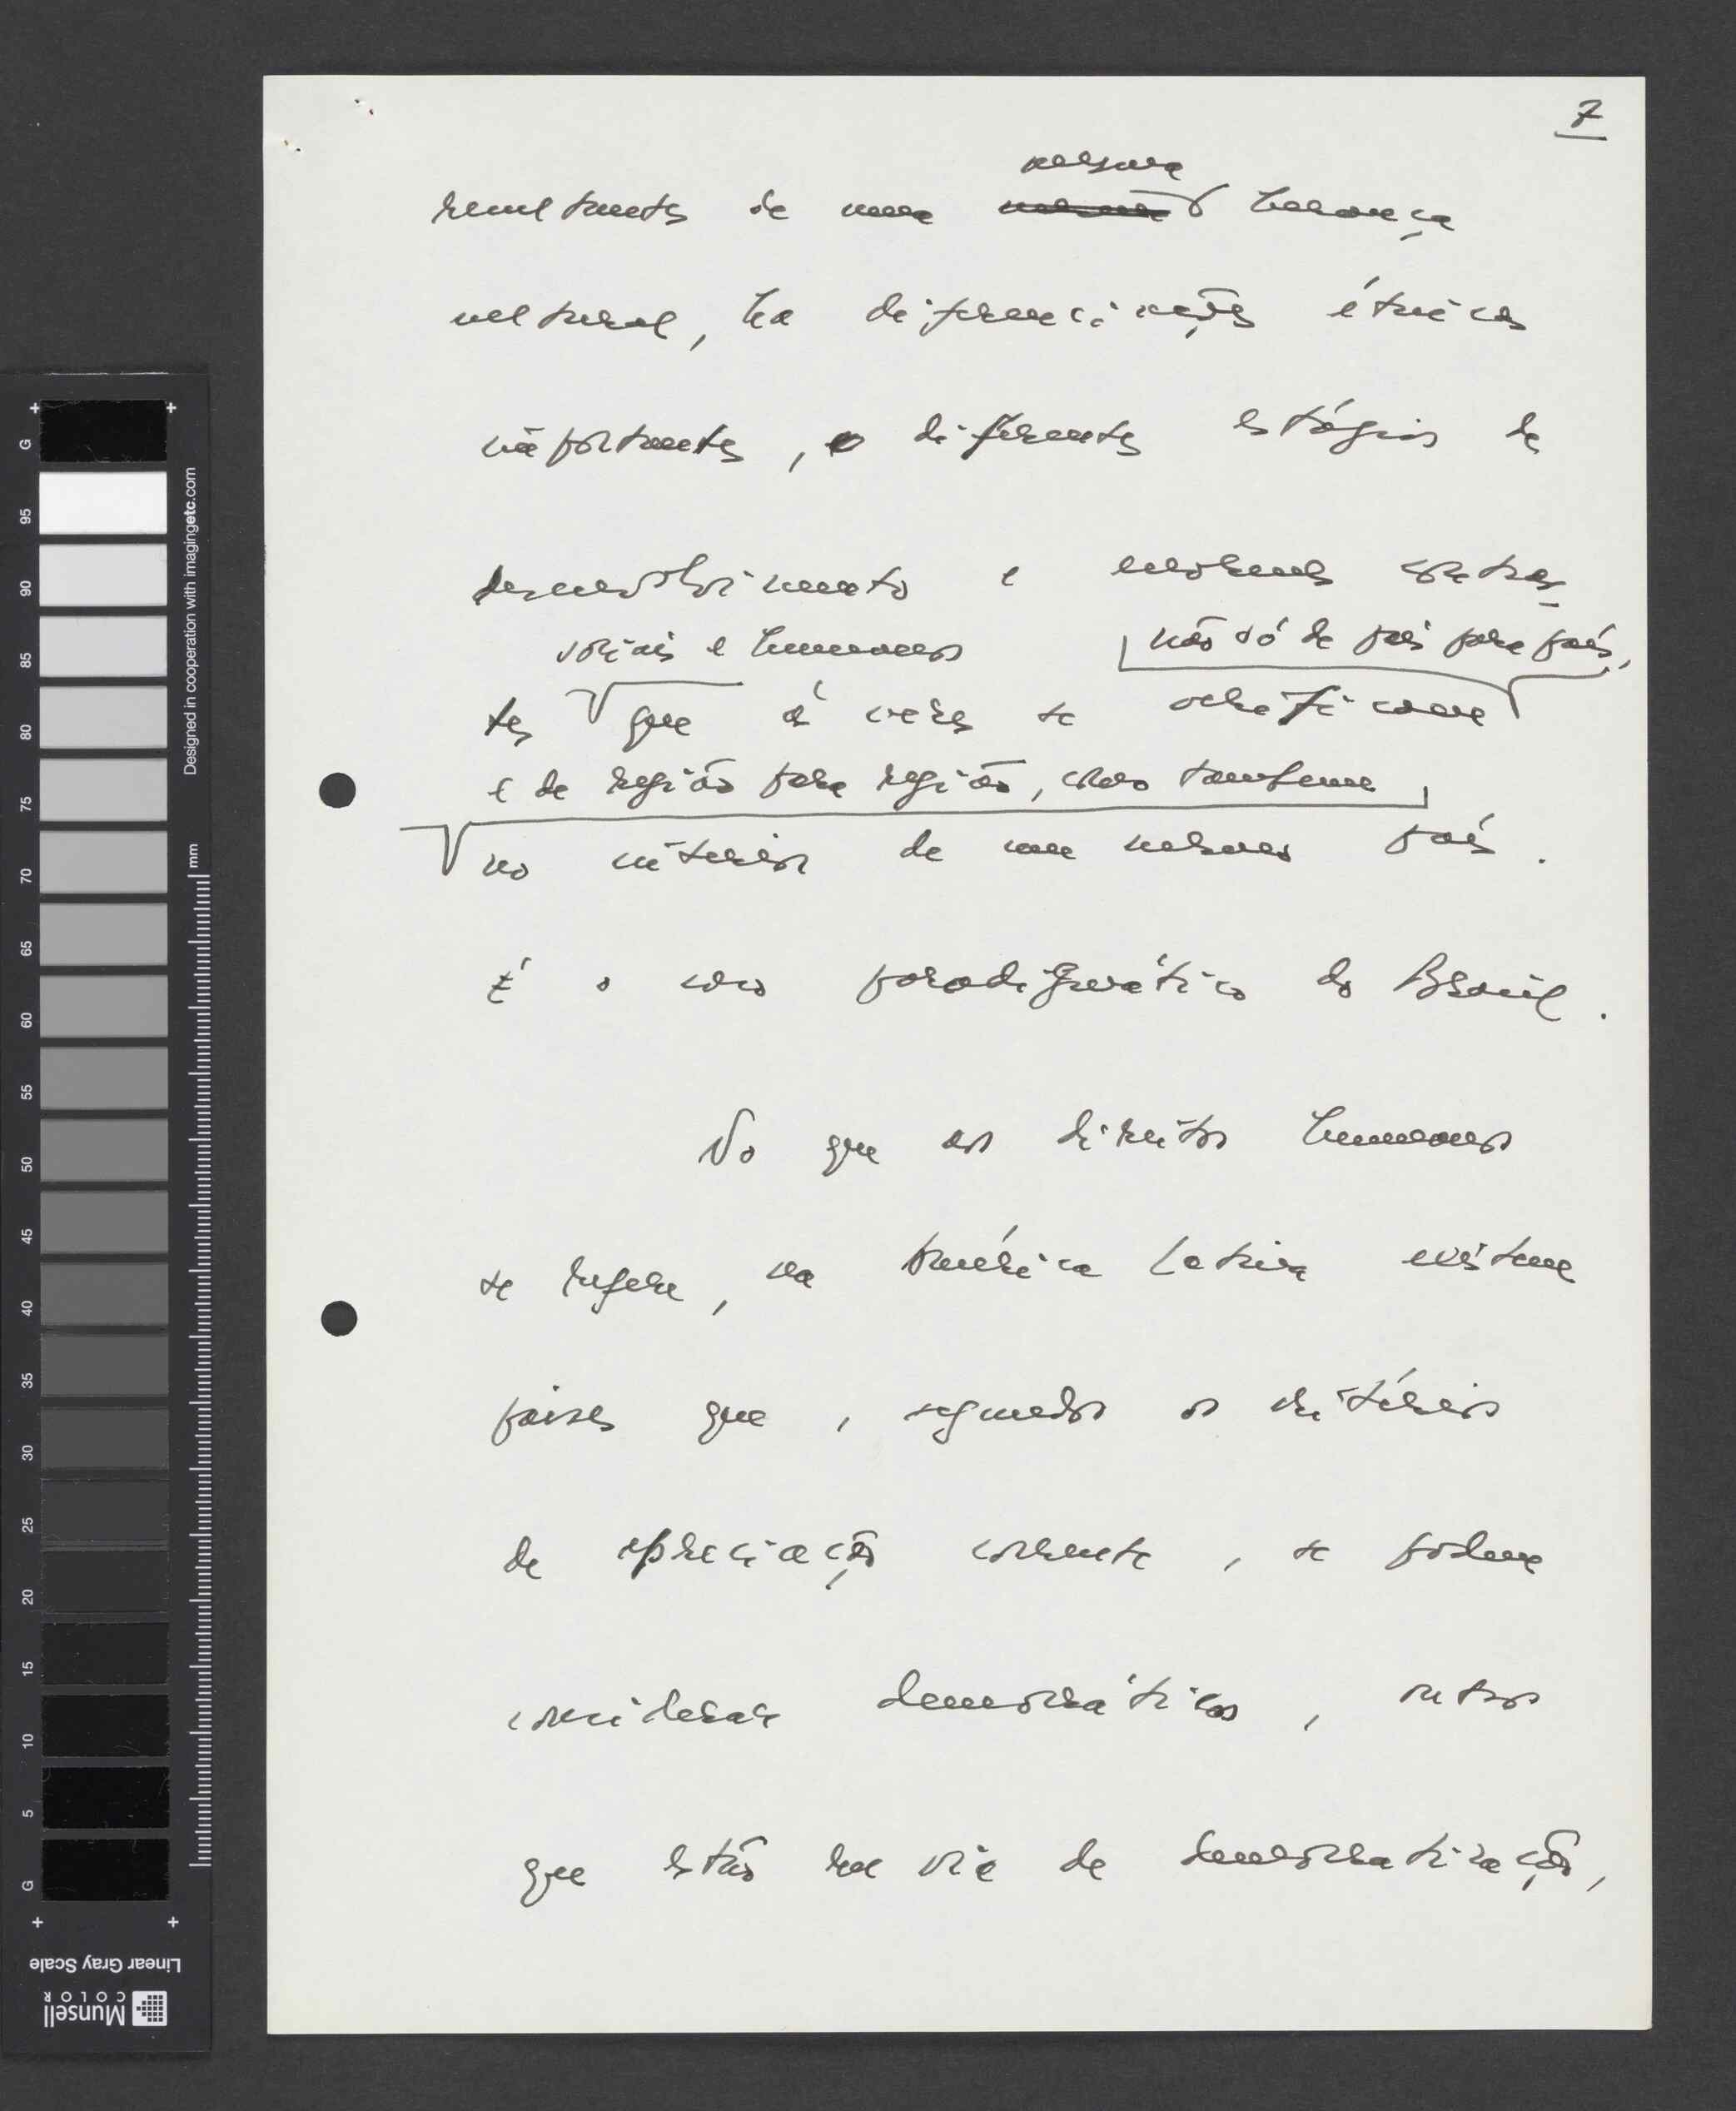 7
resultantes de uma mesma herança
cultural, há diferenciações étnicas
importantes, e diferentes estágios de
desenvolvimento e enormes contras-
tes sociais e humanos que às vezes se verificam não só de país para país,
e de região para região, como também
no interior de um mesmo país.
É o caso paradigmático do Brasil.
No que aos direitos humanos
se refere, na América Latina existem
países que, segundo os critérios
de apreciação corrente, se podem
considerar democráticos, outros
que estão em via de democratização,
G
95
90
85
80
75
70
65
60
55
50
45
40
35
30
25
20
15
10
5
G
mm
Designed in cooperation with imagingetc.com
Linear Gray Scale
Munsell
COLOR